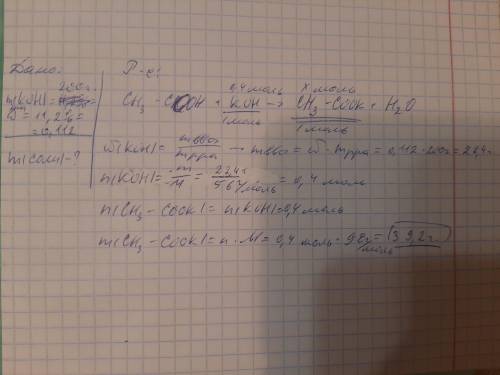 Дано:
m(KOH)= 200г.
ω = 11,2% =
= 0,112
m(соли)-?
Р-е:
0,4 моль x моль
CH₃ - COOH + KOH → CH₃ - COOK + H₂O
1 моль 1 моль
ω(KOH) = mв-ва / mр-ра → mв-ва = ω · mр-ра = 0,112 · 200г = 22,4г.
n(KOH) = m/M = 22,4г / 56г/моль = 0,4 моль
n(CH₃ - COOK) = n(KOH) = 0,4 моль
m(CH₃ - COOK) = n · M = 0,4 моль · 98г/моль = 39,2г.